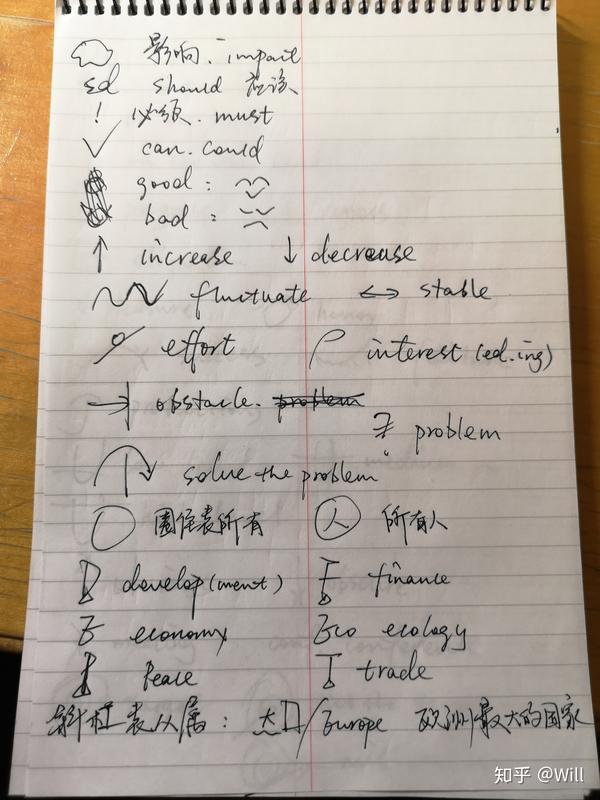 影响. impact
sd should 应该
! 必须. must
✓ can. could
good :
bad :
↑ increase ↓ decrease
fluctuate ↔ stable
effort interest (ed.ing)
obstacle. problem
problem
solve the problem
○ 圈住表所有 人 所有人
D develop(ment) F finance
E economy Eco ecology
P Peace T trade
斜杠表从属: 大口/Europe 欧洲最大的国家
知乎 @Will